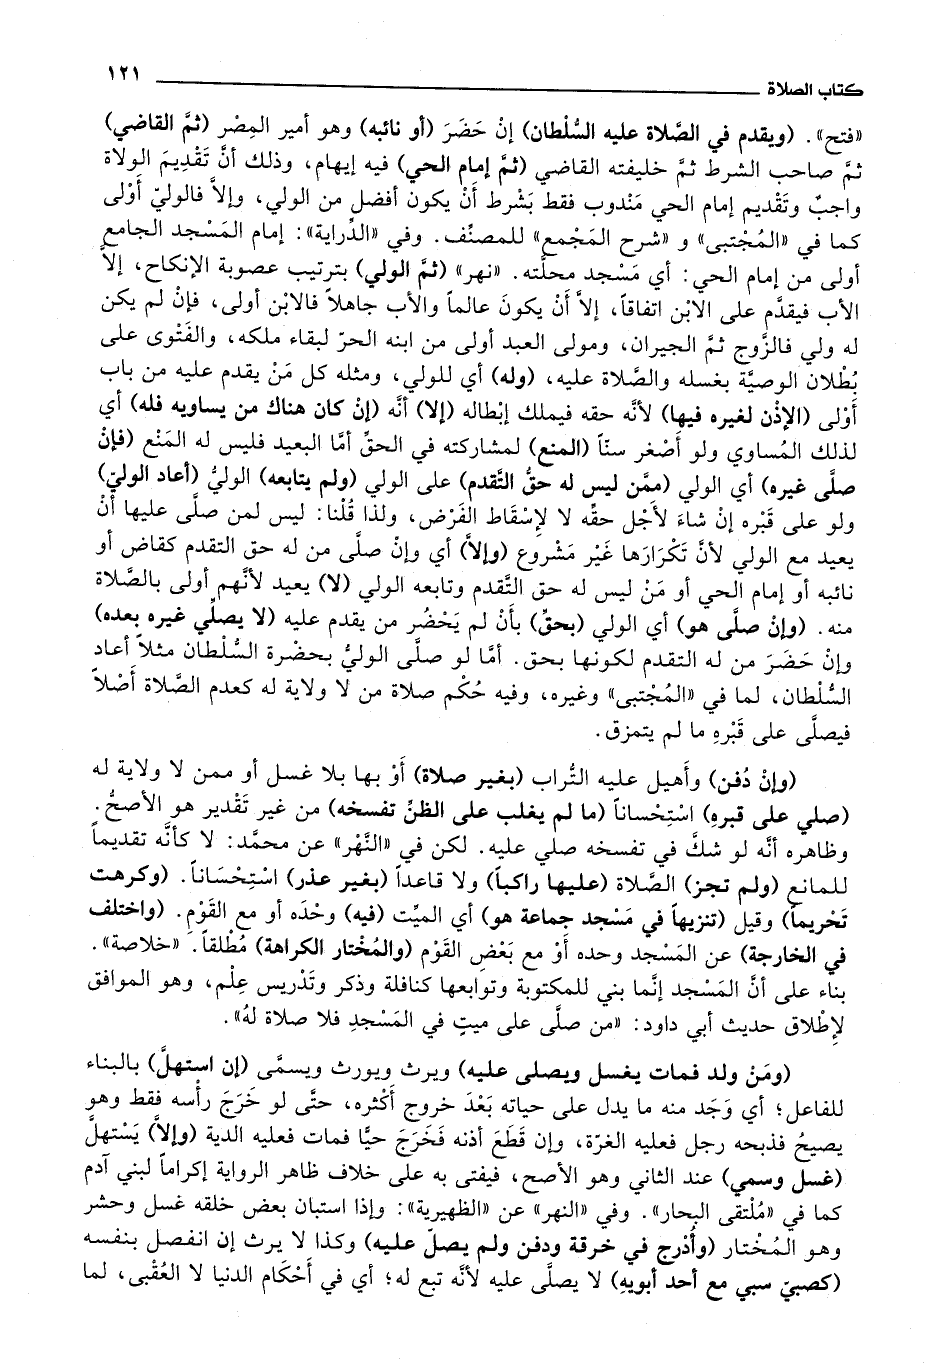 كتاب الصلاة ١٢١
«فتح». (ويقدم في الصَّلاة عليه السُّلْطان) إنْ حَضَرَ (أو نائبه) وهو أمير المِصْر (ثمَّ القاضي)
ثمَّ صاحب الشرط ثمَّ خليفته القاضي (ثمَّ إمام الحي) فيه إيهام، وذلك أنَّ تَقْدِيمَ الولاة
واجبٌ وتَقْديم إمام الحي مَنْدوب فقط بَشْرط أنْ يكون أفضل من الولي، وإلاَّ فالوليّ أَوْلى
كما في «المُجْتبى» و «شرح المَجْمع» للمصنِّف. وفي «الدِّراية»: إمام المَسْجد الجامع
أولى من إمام الحي: أي مَسْجد محلَّته. «نهر» (ثمَّ الولي) بترتيب عصوبة الإنكاح، إلاَّ
الأب فيقدَّم على الابْن اتفاقاً، إلاَّ أنْ يكونَ عالماً والأب جاهلاً فالابْن أولى، فإنْ لم يكن
له ولي فالزَّوج ثمَّ الجيران، ومولى العبد أولى من ابنه الحرّ لبقاء ملكه، والفَتْوى على
بُطْلان الوصيَّة بغسله والصَّلاة عليه، (وله) أي للولي، ومثله كل مَنْ يقدم عليه من باب
أَوْلى (الإذْن لغيره فيها) لأنَّه حقه فيملك إبْطاله (إلا) أنَّه (إنْ كان هناك من يساويه فله) أي
لذلك المُساوي ولو أَصْغر سنّاً (المنع) لمشاركته في الحقّ أمَّا البعيد فليس له المَنْع (فإنْ
صلَّى غيره) أي الولي (ممَّن ليس له حقُّ التَّقدم) على الولي (ولم يتابعه) الوليُّ (أعاد الوليّ)
ولو على قَبْره إنْ شاءَ لأجْل حقِّه لا لإسْقاط الفَرْض، ولذا قُلْنا: ليس لمن صلَّى عليها أنْ
يعيد مع الولي لأنَّ تَكْرارَها غَيْر مَشْروع (وإلاَّ) أي وإنْ صلَّى من له حق التقدم كقاض أو
نائبه أو إمام الحي أو مَنْ ليس له حق التَّقدم وتابعه الولي (لا) يعيد لأنَّهم أولى بالصَّلاة
منه. (وإنْ صلَّى هو) أي الولي (بحقٍّ) بأنْ لم يَحْضُر من يقدم عليه (لا يصلِّي غيره بعده)
وإنْ حَضَرَ من له التقدم لكونها بحق. أمَّا لو صلَّى الوليُّ بحضْرة السُّلْطان مثلاً أعاد
السُّلْطان، لما في «المُجْتبى» وغيره، وفيه حُكْم صلاة من لا ولاية له كعدم الصَّلاة أصْلاً
فيصلَّى على قَبْرِهِ ما لم يتمزق.
(وإنْ دُفن) وأهيل عليه التُّراب (بغير صلاة) أوْ بها بلا غسل أو ممن لا ولاية له
(صلي على قبرهِ) اسْتِحْساناً (ما لم يغلب على الظنّ تفسخه) من غير تَقْدير هو الأصحُّ.
وظاهره أنَّه لو شكَّ في تفسخه صلي عليه. لكن في «النَّهْر» عن محمَّد: لا كأنَّه تقديماً
للمانع (ولم تجز) الصَّلاة (عليها راكباً) ولا قاعداً (بغير عذر) اسْتِحْسَاناً. (وكرهت
تَحْريماً) وقيل (تنزيهاً في مَسْجد جماعة هو) أي الميِّت (فيه) وحْدَه أو مع القَوْمِ. (واختلف
في الخارجة) عن المَسْجد وحده أوْ مع بَعْضِ القَوْم (والمُختار الكراهة) مُطْلقاً. «خلاصة».
بناء على أنَّ المَسْجد إنَّما بني للمكتوبة وتوابعها كنافلة وذكر وتَدْريس عِلْم، وهو الموافق
لإطْلاق حديث أبي داود: «من صلَّى على ميتٍ في المَسْجدِ فلا صلاة لهُ».
(ومَنْ ولد فمات يغسل ويصلى عليه) ويرث ويورث ويسمَّى (إن استهلَّ) بالبناء
للفاعل؛ أي وَجَد منه ما يدل على حياته بَعْدَ خروج أكْثره، حتَّى لو خَرَجَ رأْسه فقط وهو
يصيحُ فذبحه رجل فعليه الغرّة، وإن قَطَعَ أذنه فَخَرَجَ حيَّا فمات فعليه الدية (وإلاَّ) يَسْتهلَّ
(غسل وسمي) عند الثاني وهو الأصح، فيفتى به على خلاف ظاهر الرواية إكراماً لبني آدم
كما في «مُلْتقى البحار». وفي «النهر» عن «الظهيرية»: وإذا استبان بعض خلقه غسل وحشر
وهو المُخْتار (وأُدْرج في خرقة ودفن ولم يصلّ عليه) وكذا لا يرث إن انفصل بنفسه
(كصبيّ سبي مع أحد أبويهِ) لا يصلَّى عليه لأنَّه تبع له؛ أي في أحْكَام الدنيا لا العُقْبى، لما